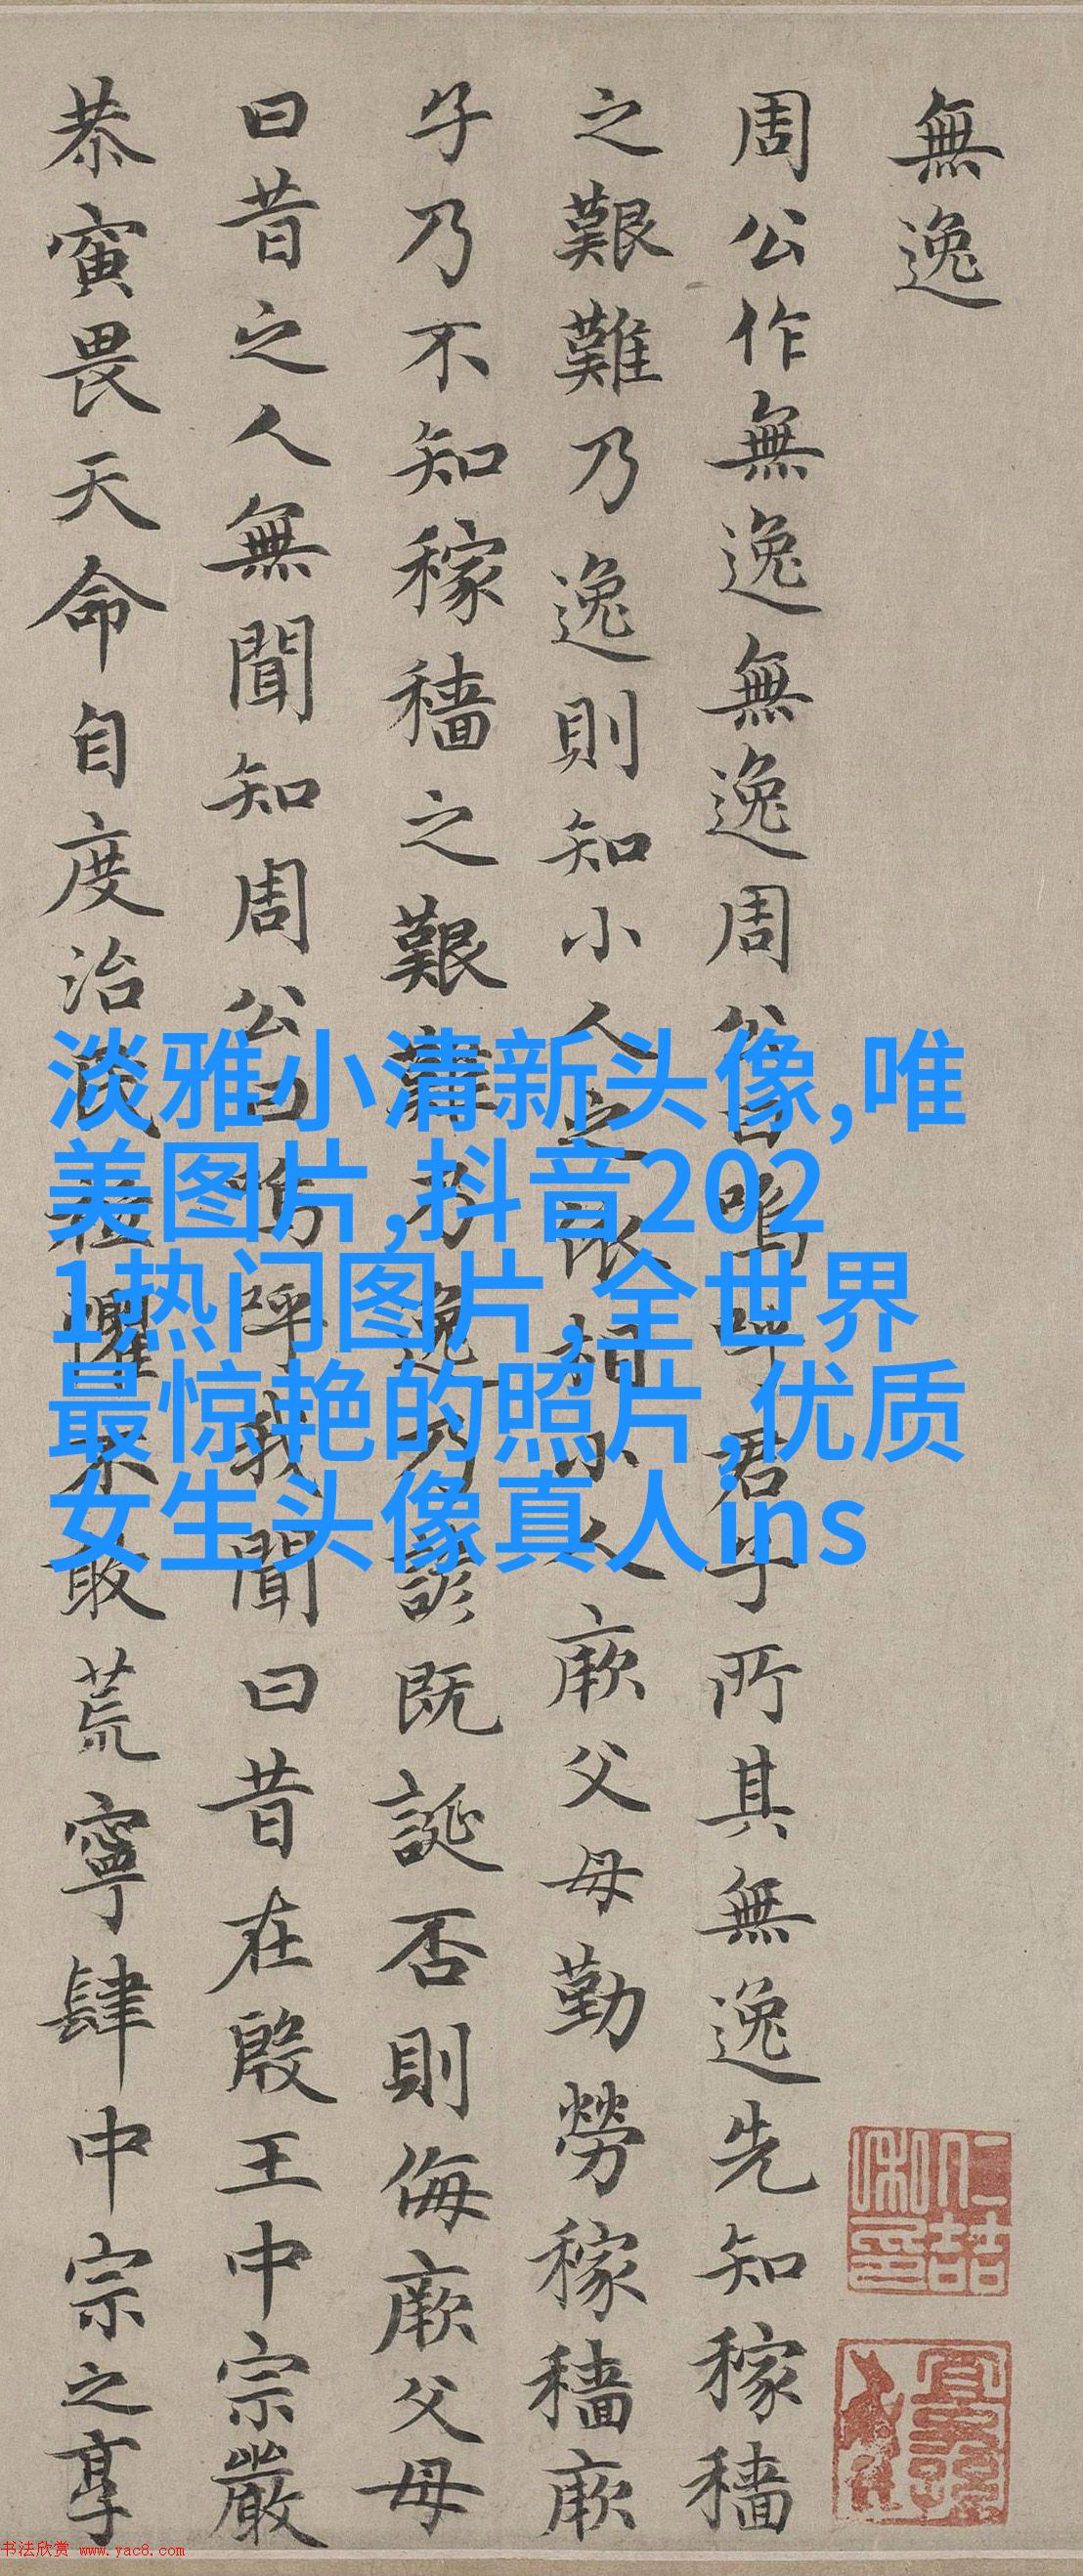 無逸
周公作無逸無逸周公曰嗚呼君子所其無逸先知稼穡
之艱難乃逸則知小人之依相小人厥父母勤勞稼穡厥
子乃不知稼穡之艱難乃逸乃諺既誕否則侮厥父母
曰昔之人無聞知周公曰嗚呼我聞曰昔在殷王中宗嚴
恭寅畏天命自度治民祗懼不敢荒寧肆中宗之享
淡雅小清新头像,唯
美图片,抖音202
1热门图片,全世界
最惊艳的照片,优质
女生头像真人ins
书法欣赏 www.yac8.com